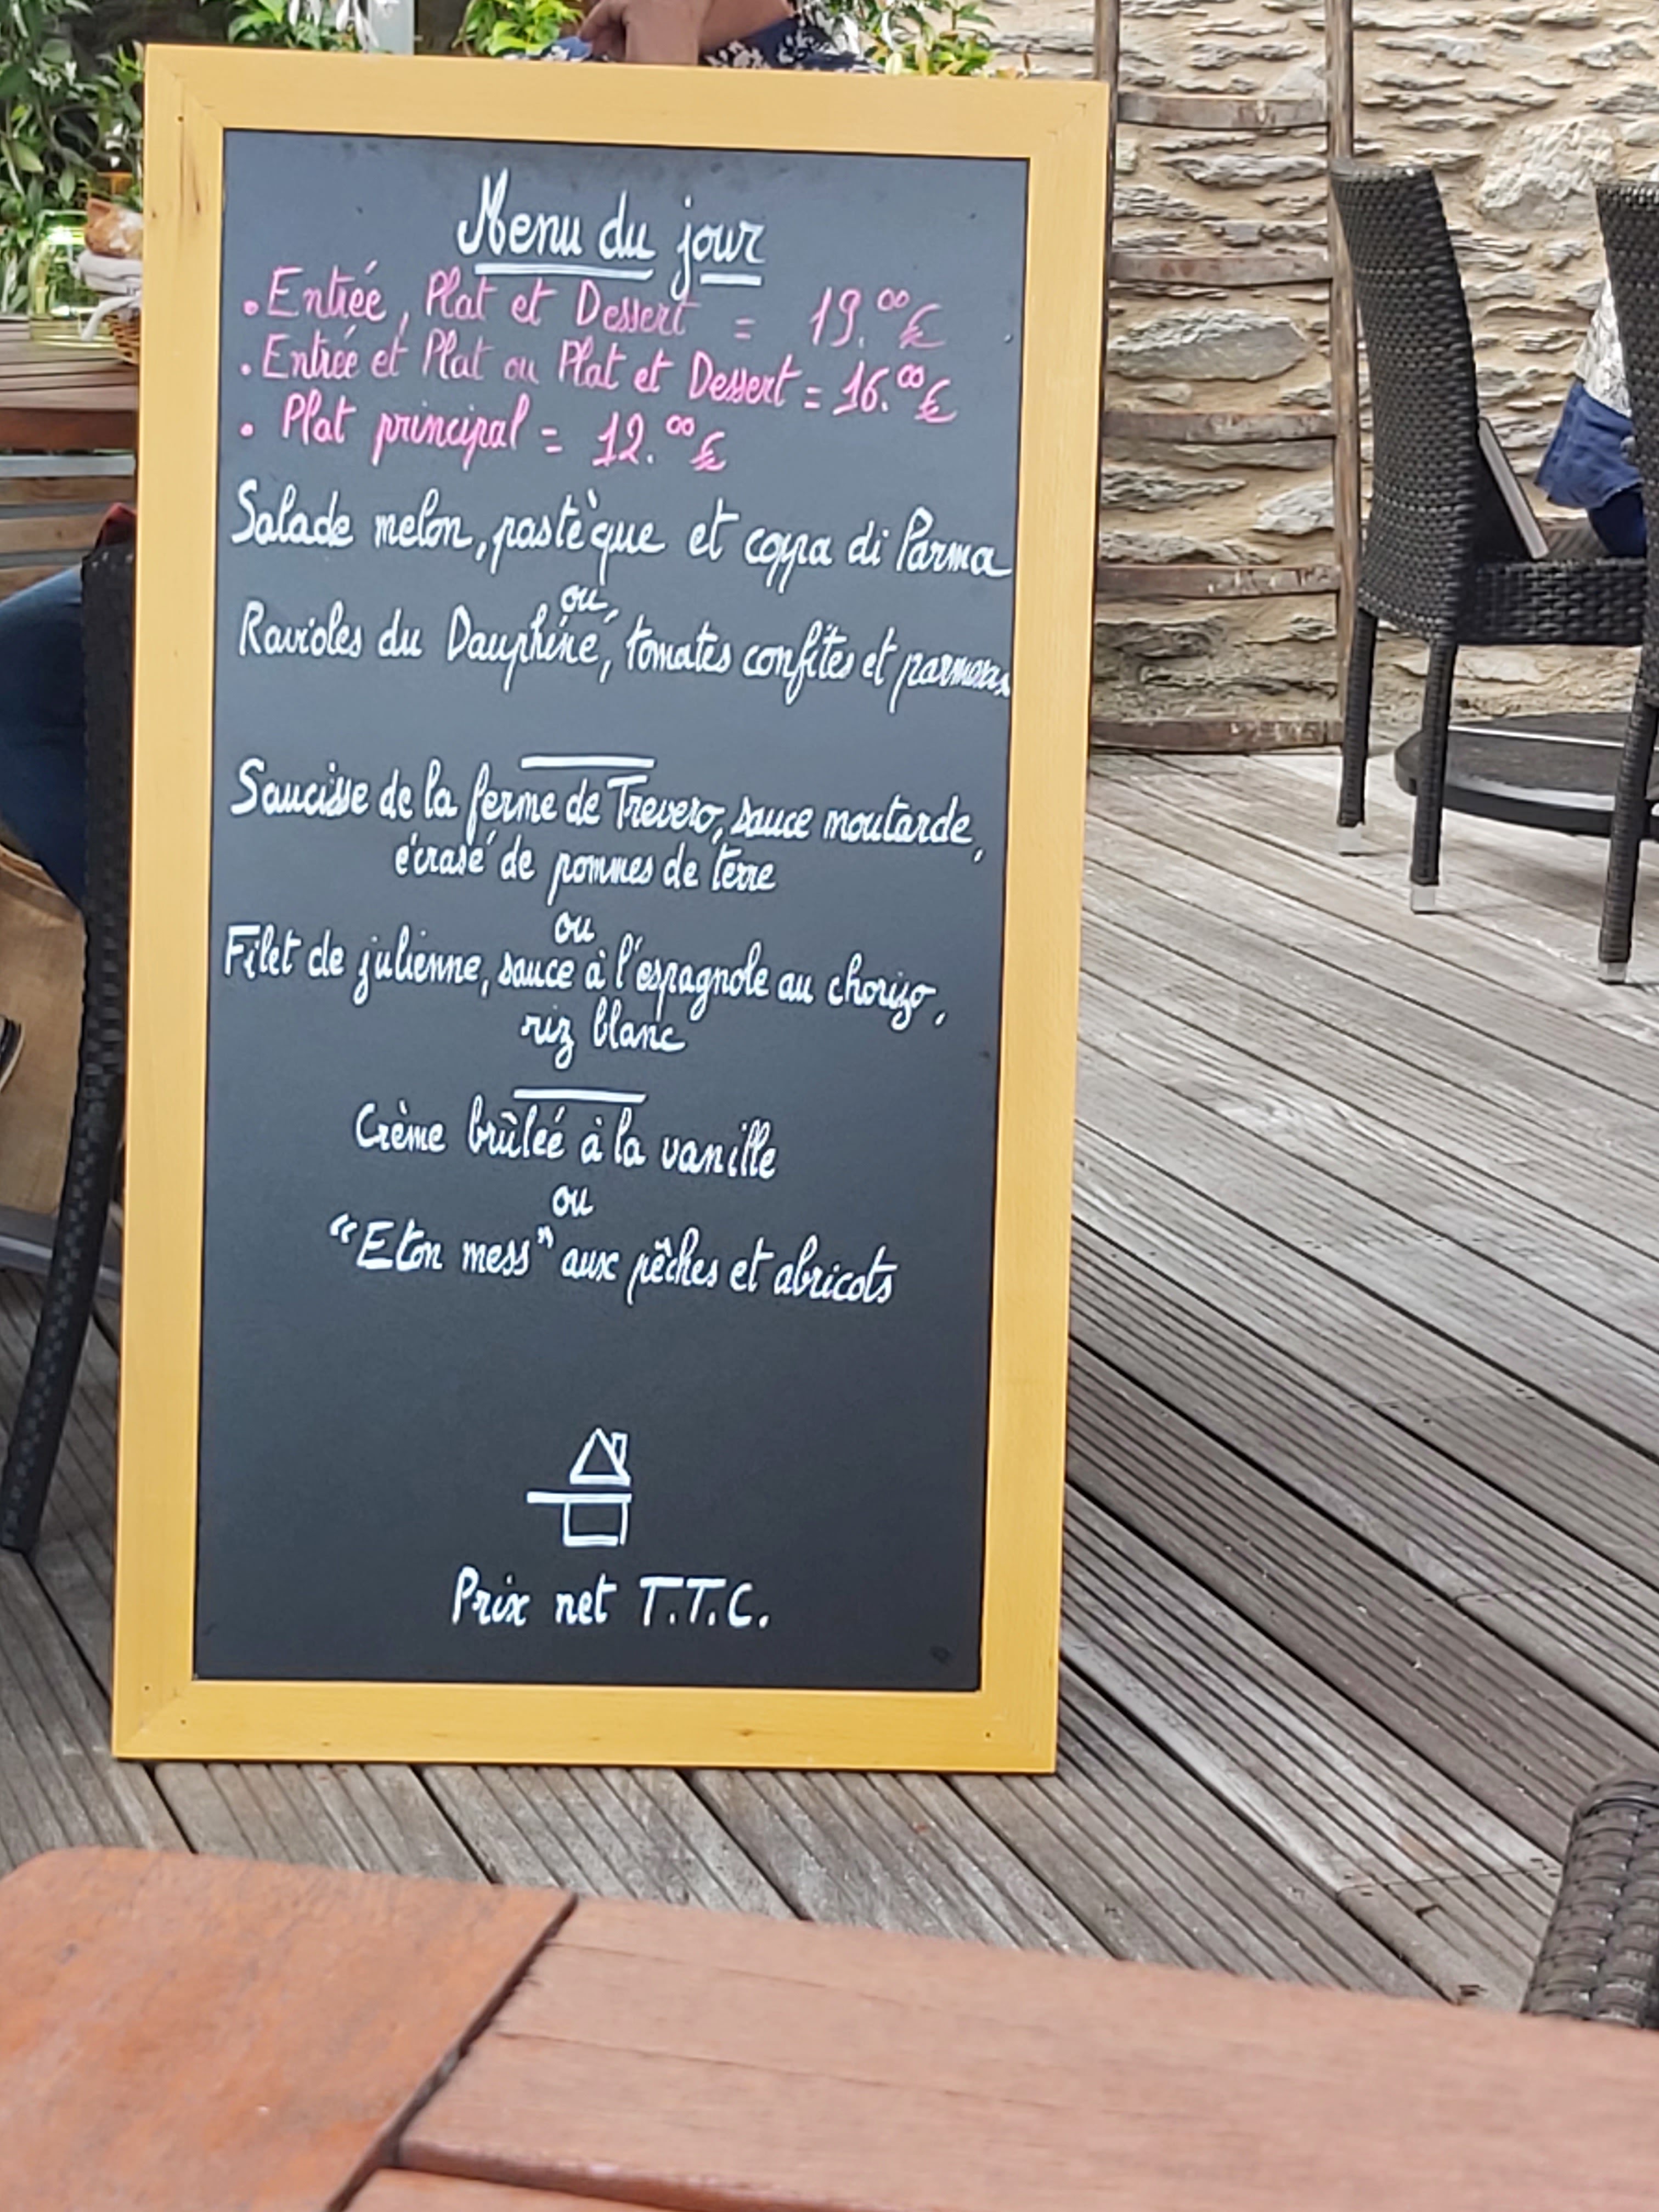 Menu du jour
. Entrée, Plat et Dessert = 19.00€
. Entrée et Plat ou Plat et Dessert = 16.00€
. Plat principal = 12.00€
Salade melon, pastèque et coppa di Parma
ou
Ravioles du Dauphiné, tomates confites et parmesan
Saucisse de la ferme de Trevero, sauce moutarde,
écrasé de pommes de terre
ou
Filet de julienne, sauce à l'espagnole au chorizo,
riz blanc
Crème brûleé à la vanille
ou
"Eton mess" aux pêches et abricots
Prix net T.T.C.